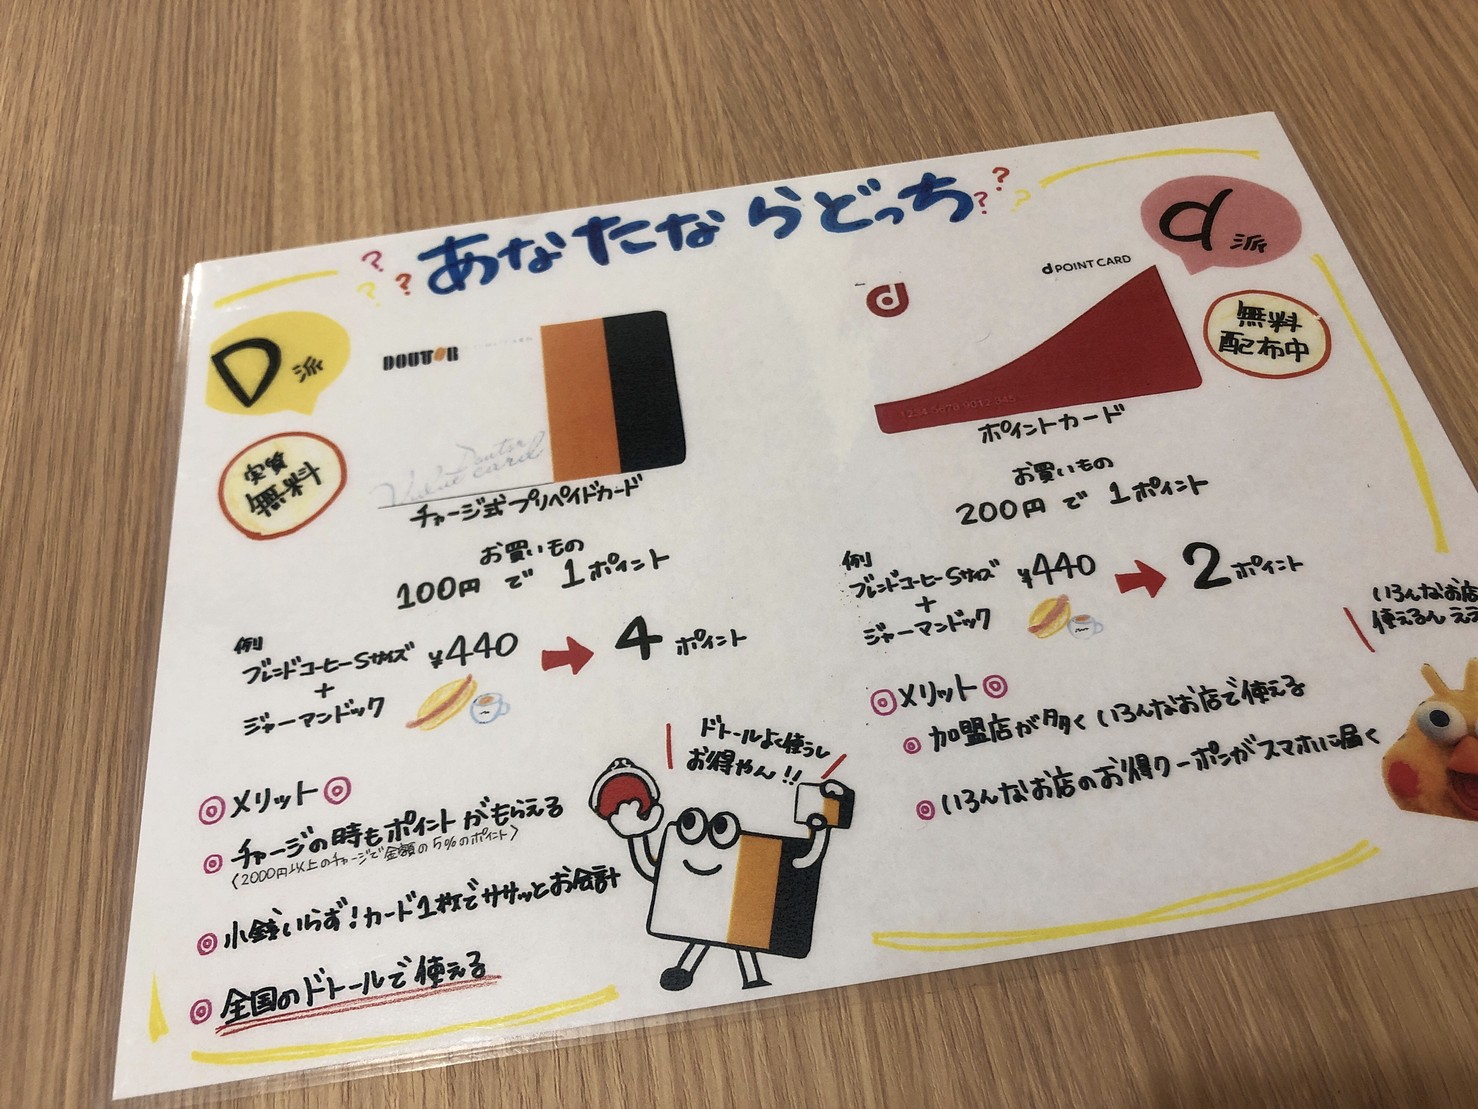 あなたならどっち
???
???
D派
実質
無料
DOUTOR
Doutor
Value card
チャージ式プリペイドカード
お買いもの
100円で1ポイント
例
ブレンドコーヒーSサイズ
+
ジャーマンドック
¥440
4ポイント
メリット
チャージの時もポイントがもらえる
(2000円以上のチャージで金額の5%のポイント)
小銭いらず!カード1枚でササッとお会計
全国のドトールで使える
ドトールよく使うし
お得やん!!
d派
無料
配布中
d
d POINT CARD
1234 5678 9012 345
ポイントカード
お買いもの
200円で1ポイント
例
ブレンドコーヒーSサイズ
+
ジャーマンドック
¥440
2ポイント
いろんなお店
使えるん ええ
メリット
加盟店が多くいろんなお店で使える
いろんなお店のお得クーポンがスマホに届く